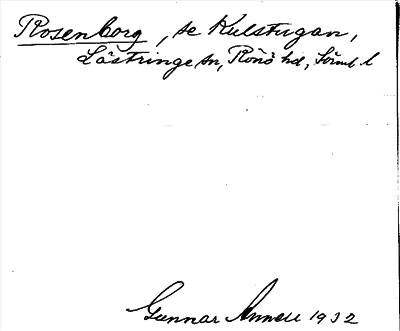 Rosenborg, se Kulstugan,
Lästringe sn, Rönö hd, Söml l
Gunnar Annell 1932